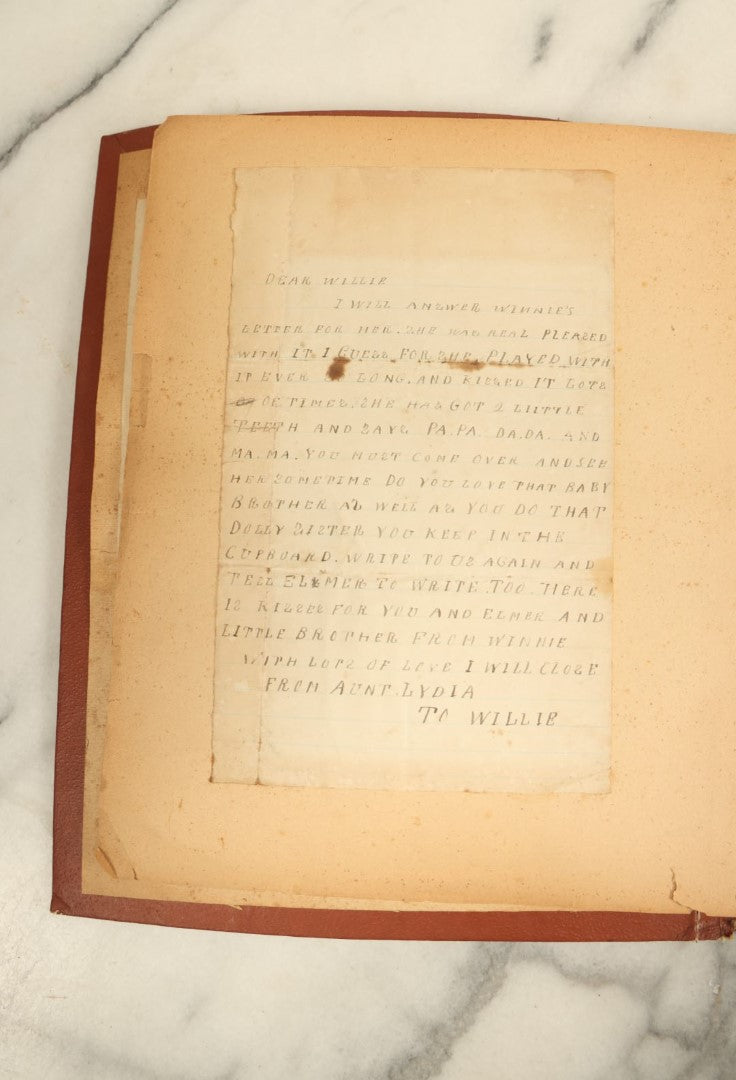 DEAR WILLIE
I WILL ANSWER WINNIE'S
LETTER FOR HER. SHE WAS REAL PLEASED
WITH IT I GUESS FOR SHE. PLAYED WITH
IT EVER SO LONG. AND KISSED IT LOTS
OF TIMES. SHE HAS GOT 2 LIITTLE
TEETH AND SAYS PA. PA. DA. DA. AND
MA. MA. YOU MUST COME OVER AND SEE
HER SOMETIME DO YOU LOVE THAT BABY
BROTHER AS WELL AS YOU DO THAT
DOLLY SISTER YOU KEEP IN THE
CUPBOARD. WRITE TO US AGAIN AND
TELL ELLMER TO WRITE. TOO. HERE
IS KISSES FOR YOU AND ELMER AND
LITTLE BROTHER FROM WINNIE
WITH LOTS OF LOVE I WILL CLOSE
FROM AUNT. LYDIA
TO WILLIE